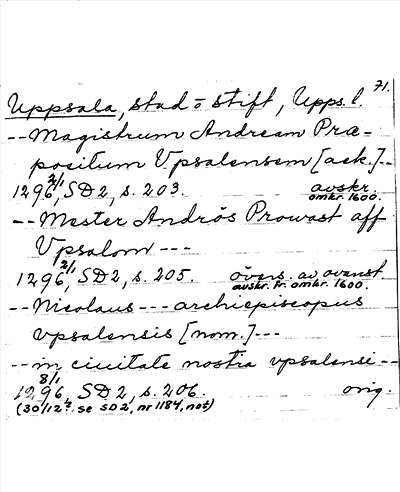 71.
Uppsala, stad o stift, Upps. l.
-- Magistrum Andream Præ-
positum Vpsalensem [ack.]--
1296 2/1, SD 2, s. 203. avskr. omkr. 1600.
-- Mester Andrös Prowast aff
Vpsalom ---
1296 2/1, SD 2, s. 205. övers. av ovanst. avskr. fr. omkr. 1600.
-- Nicolaus --- archiepiscopus
vpsalensis [nom.] ---
-- in ciuitate nostra vpsalensi --
1296 8/1, SD 2, s. 206. orig.
(30/12 ?. se SD 2, nr 1184, not)